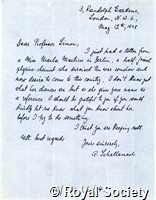 3, Randolph Gardens,
London, N.W.6,
May 12th, 1948
Dear Professor Simon,
I just had a letter from
a Miss Martinius in Berlin, a half-Jewish
physical chemist who survived the war somehow and
now desires to come to this country. I don't know just
what her chances are but so she gives your name as
a reference I should be grateful to you if you would
kindly let me know what you know about her before
I try to do something.
I trust you are keeping well.
With best regards
Yours sincerely,
© The Royal Society